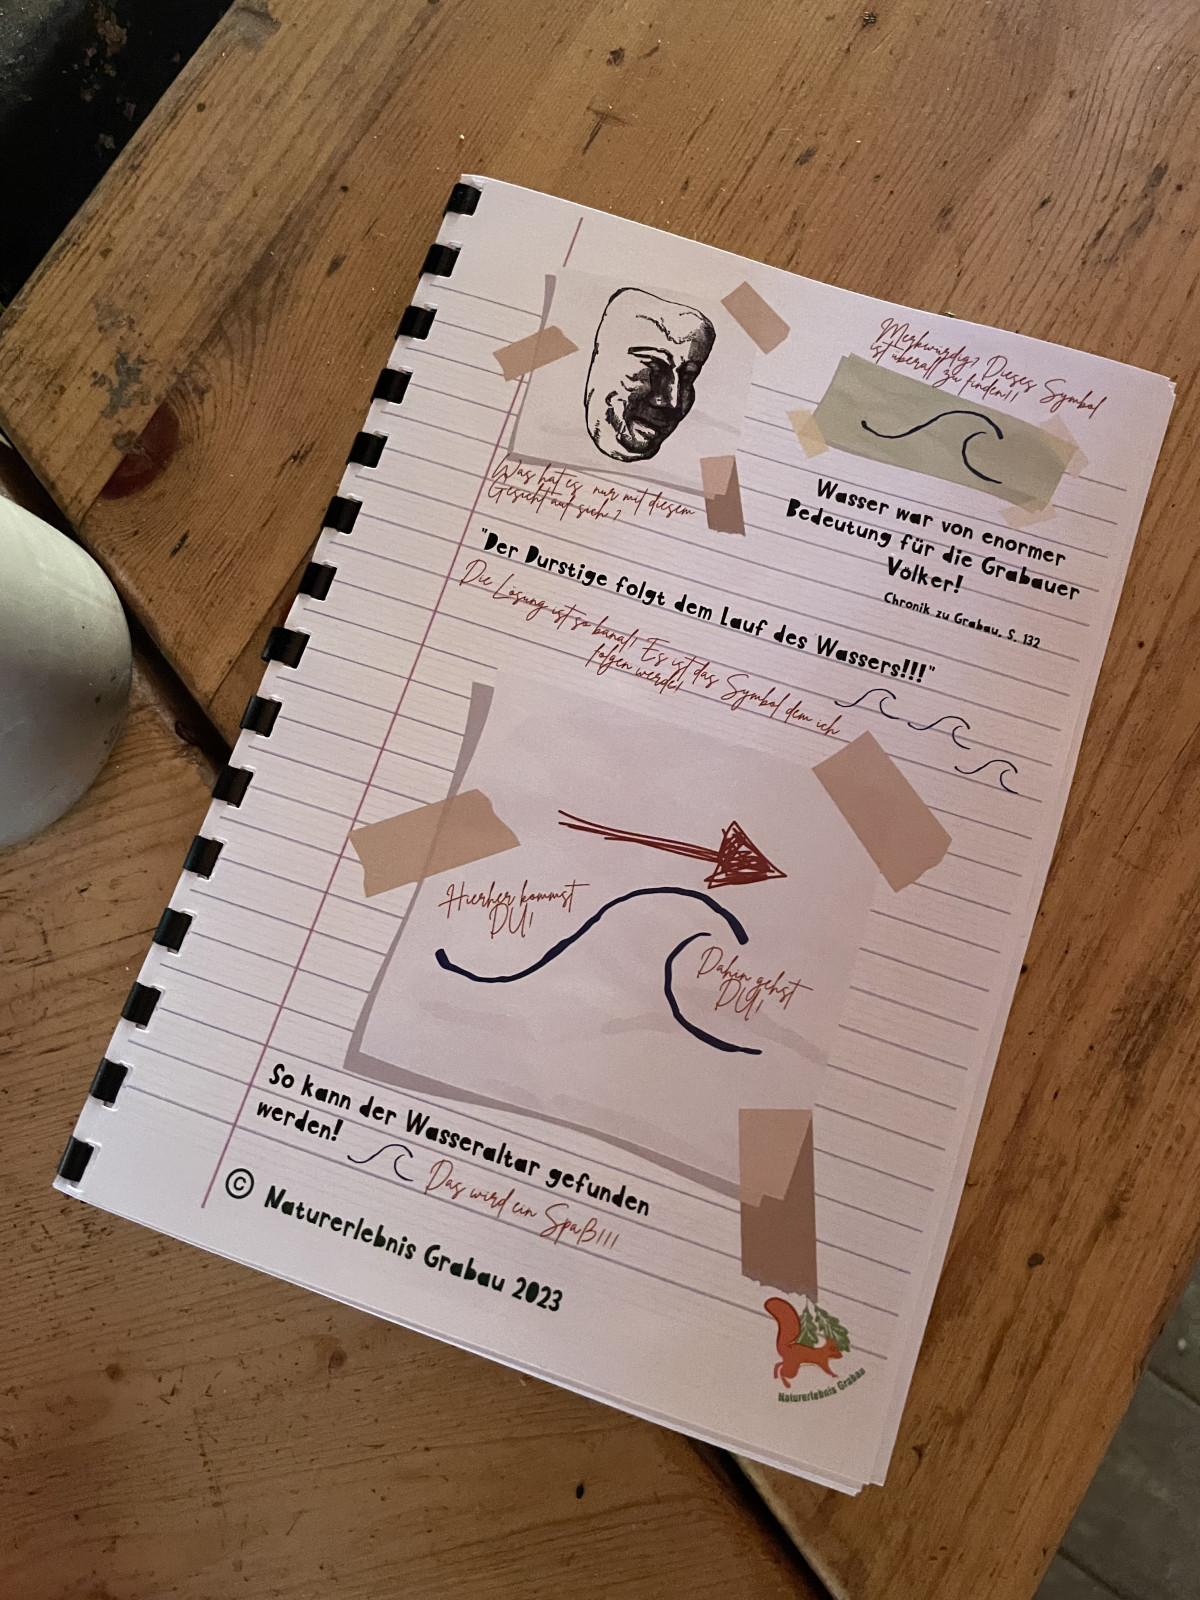 Merkwürdig? Dieses Symbol
ist überall zu finden!!
Was hat es nur mit diesem
Gesicht auf sich?
Wasser war von enormer
Bedeutung für die Grabauer
Völker!
Chronik zu Grabau, S. 132
"Der Durstige folgt dem Lauf des Wassers!!!"
Die Lösung ist so banal! Es ist das Symbol dem ich
folgen werde!
Hierher kommst
DU!
Dahin gehst
DU!
So kann der Wasseraltar gefunden
werden!
Das wird ein Spaß!!!
© Naturerlebnis Grabau 2023
Naturerlebnis Grabau